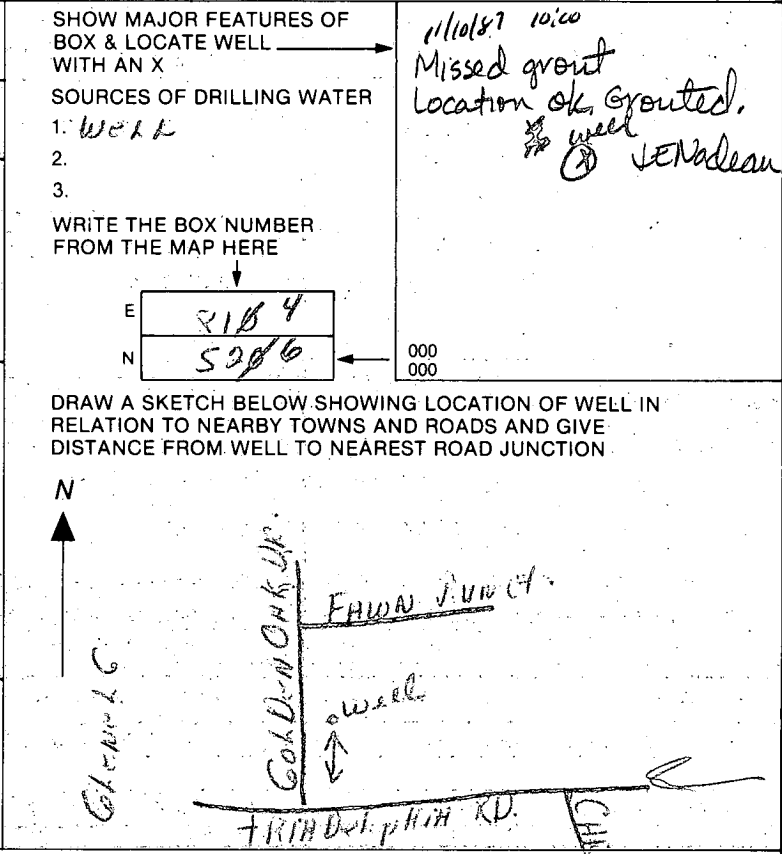 SHOW MAJOR FEATURES OF
BOX & LOCATE WELL
WITH AN X
SOURCES OF DRILLING WATER
1. WELL
2.
3.
WRITE THE BOX NUMBER
FROM THE MAP HERE
E
N
11/10/87 10:00
Missed grout
Location ok. Grouted.
well
X
000
000
DRAW A SKETCH BELOW SHOWING LOCATION OF WELL IN
RELATION TO NEARBY TOWNS AND ROADS AND GIVE
DISTANCE FROM WELL TO NEAREST ROAD JUNCTION
N
GLENELG
GOLDEN OAK DR.
FAWN RUN CT.
well
TRIADELPHIA RD.